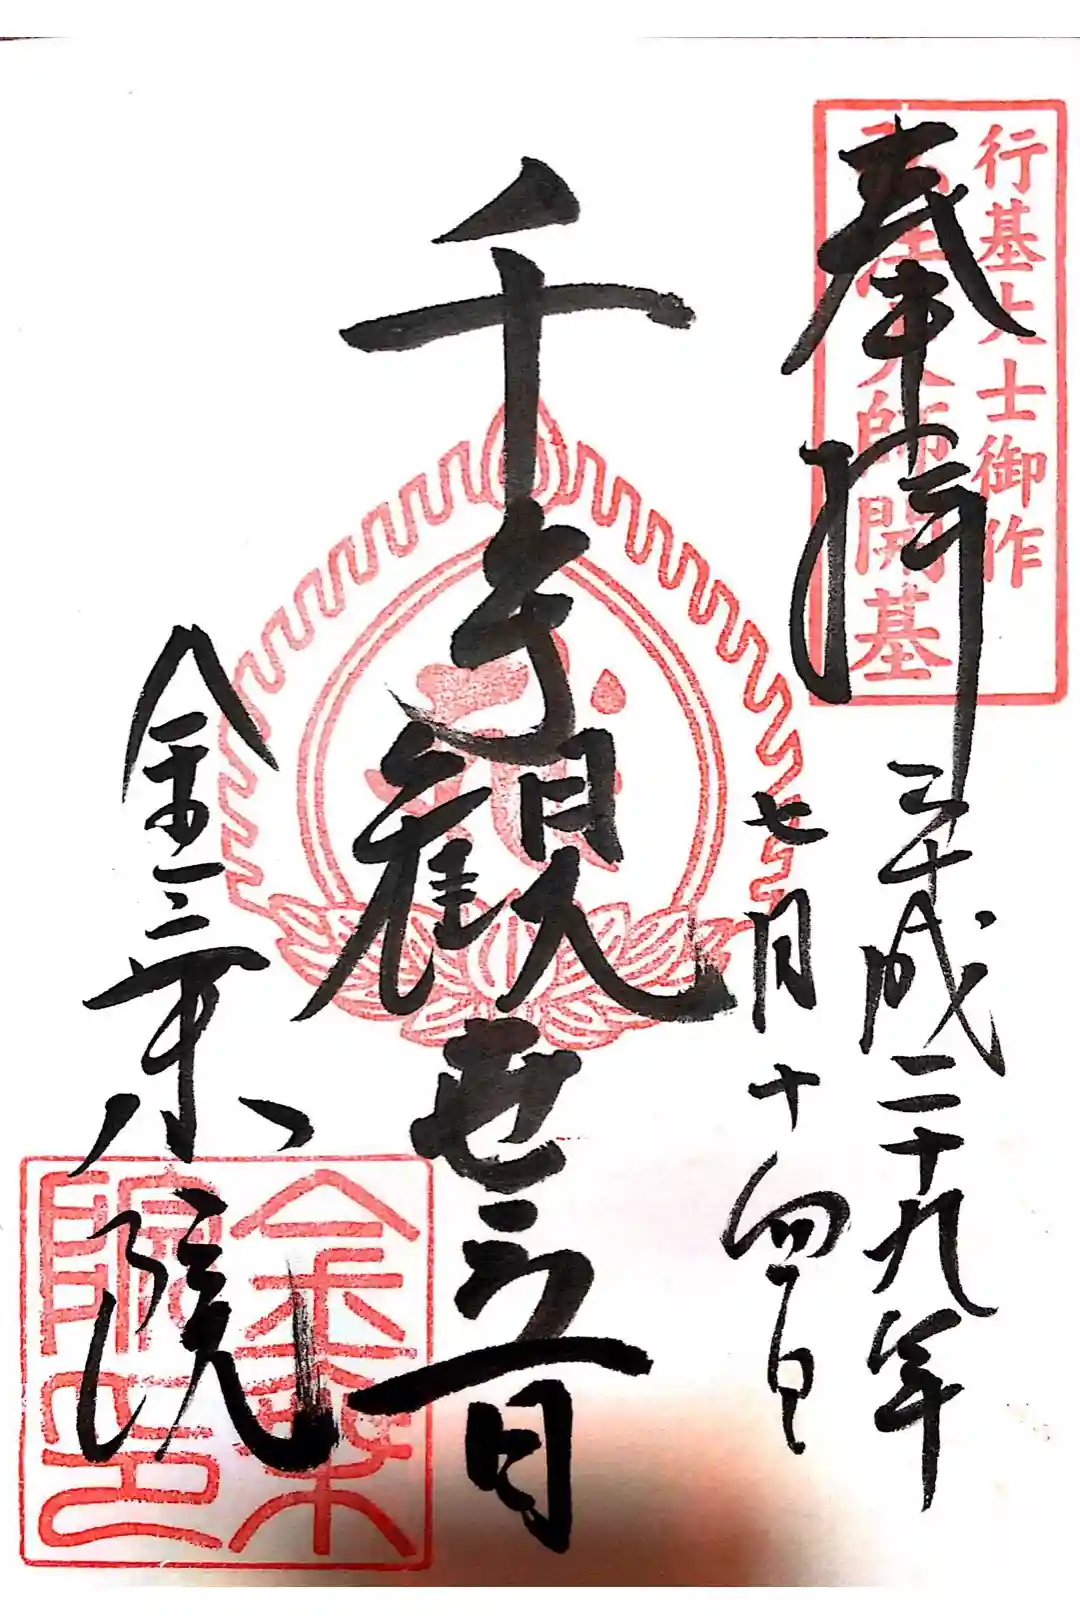 行基大士御作
大師開基
奉拝
平成二十九年
七月十四日
千手観世音
金乗院
金乗
院印